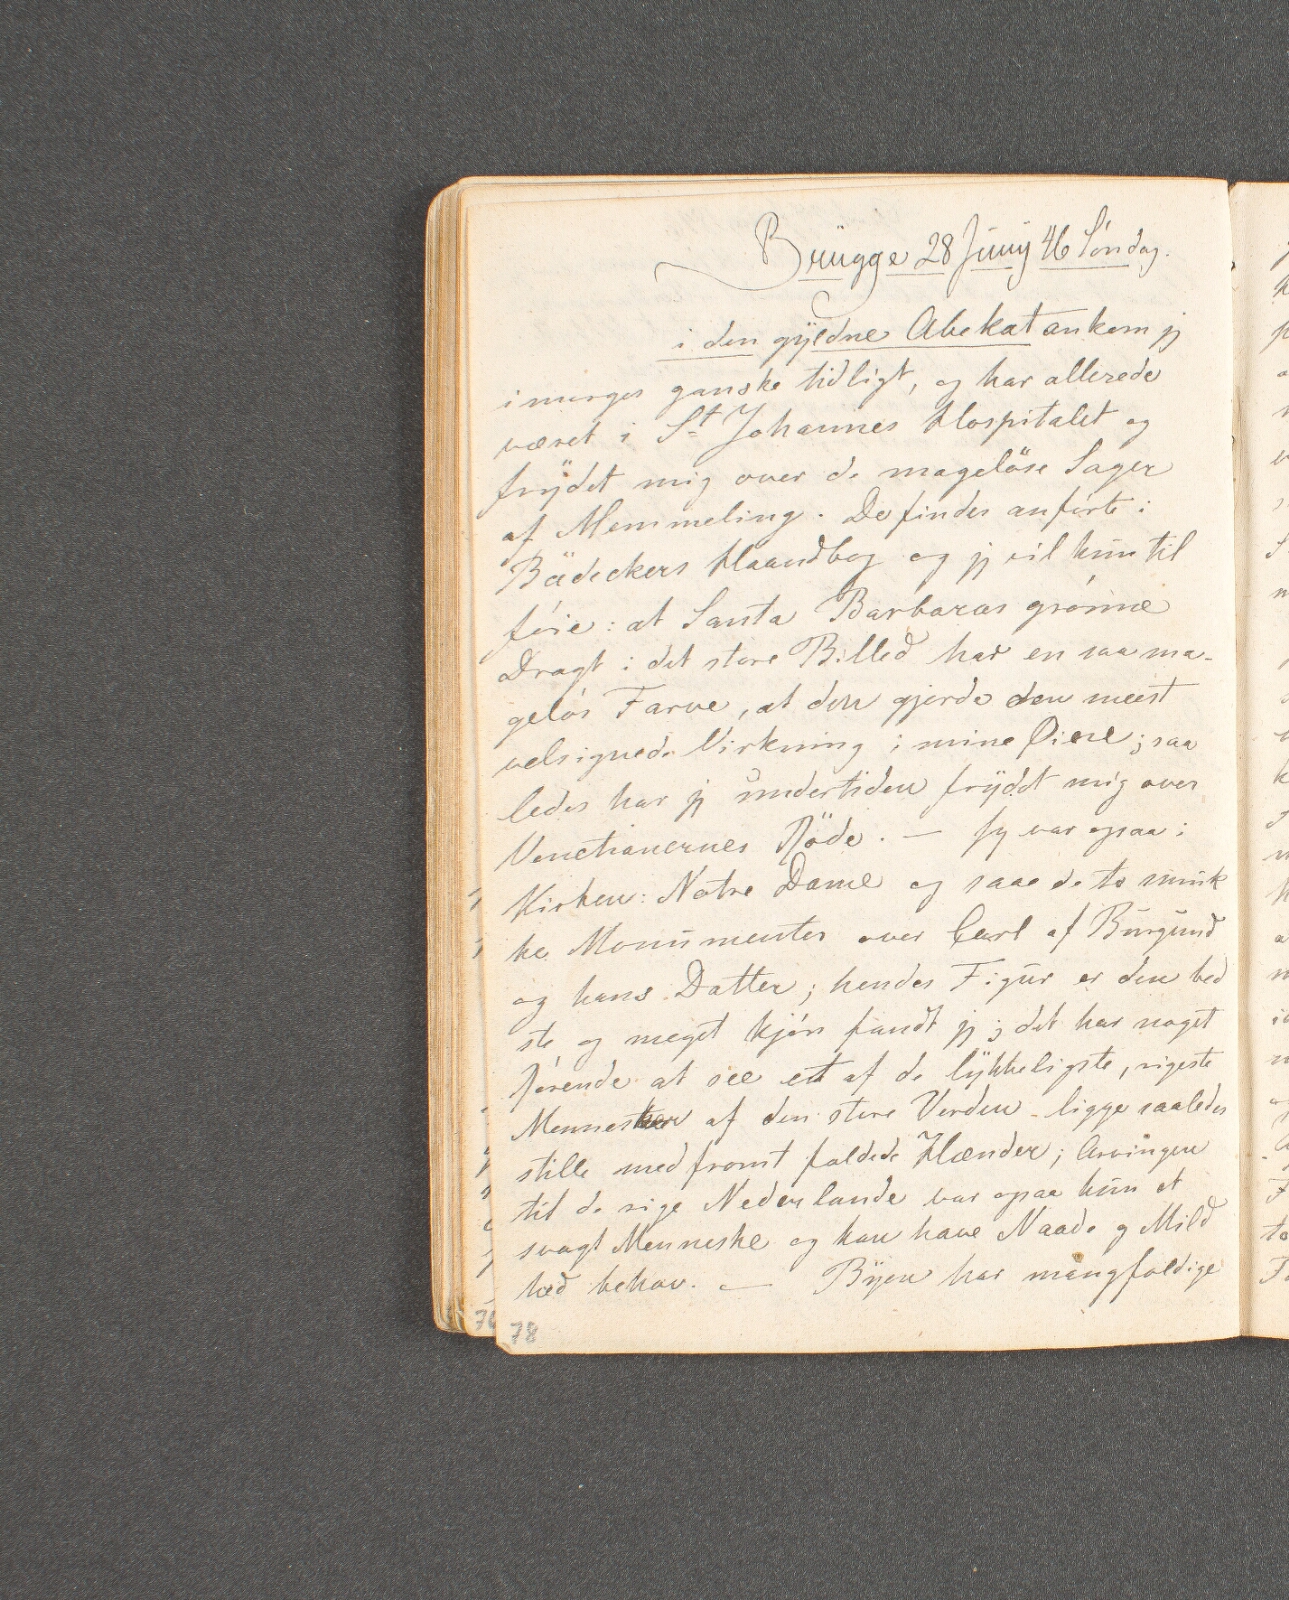 Brügge 28 Juny 46 Söndag.
i den gyldne Abekat ankom jg
imorges ganske tidligt, og har allerede
været i St Johannes Hospitalet og
frydet mig over de mageløse Sager
af Memmeling. De findes anførte i
Bädeckers Haandbog og jg vil kun til
føie: at Santa Barbaras grønne
Dragt i det store Billed har en saa ma-
geløs Farve, at den gjorde den meest
velsignede Virkning i mine Øine; saa
ledes har jg undertiden frydet mig over
Venetianernes Røde. — Jg var ogsaa i
Kirken: Notre Dame og saae de to smuk
ke Monumenter over Carl af Burgund
og hans Datter; hendes Figur er den bed
ste og meget kjøn fandt jg; det har noget
Rørende at see ett af de lykkeligste, rigeste
Mennesker af den store Verden ligge saaledes
stille med fromt foldede Hænder; Arvingen
til de rige Nederlande var ogsaa kun et
svagt Menneske og kan have Naade og Mild
hed behov. — Byen har mangfoldige
78